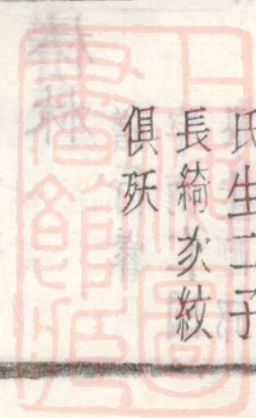 氏生二子
長綺次紋
俱殀